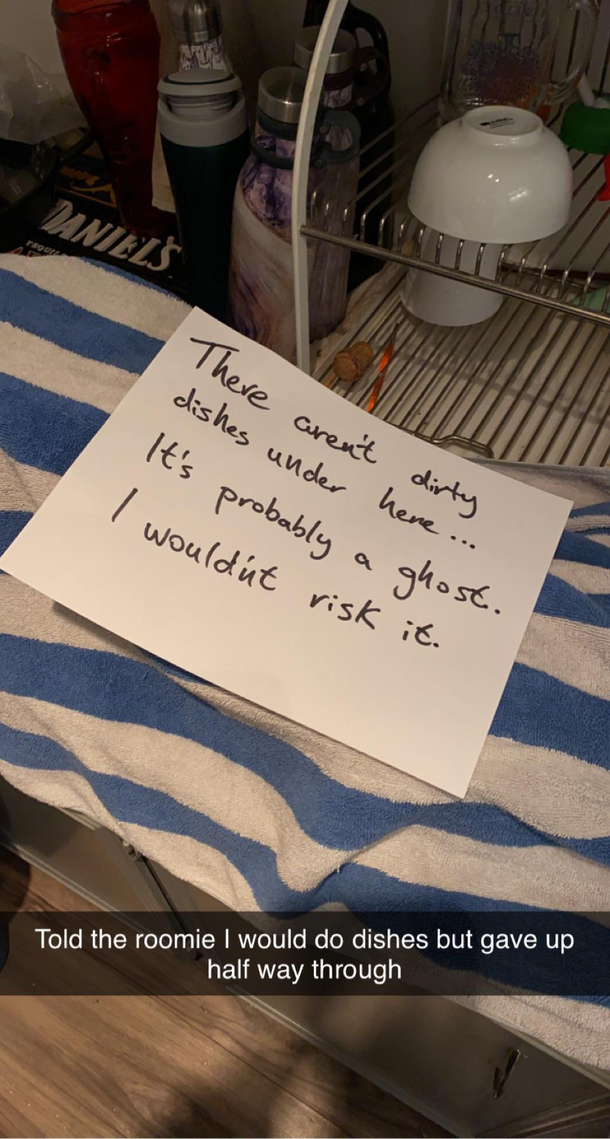 DANIEL'S
There aren't dirty
dishes under here...
It's probably a ghost.
I wouldn't risk it.
Told the roomie I would do dishes but gave up
half way through